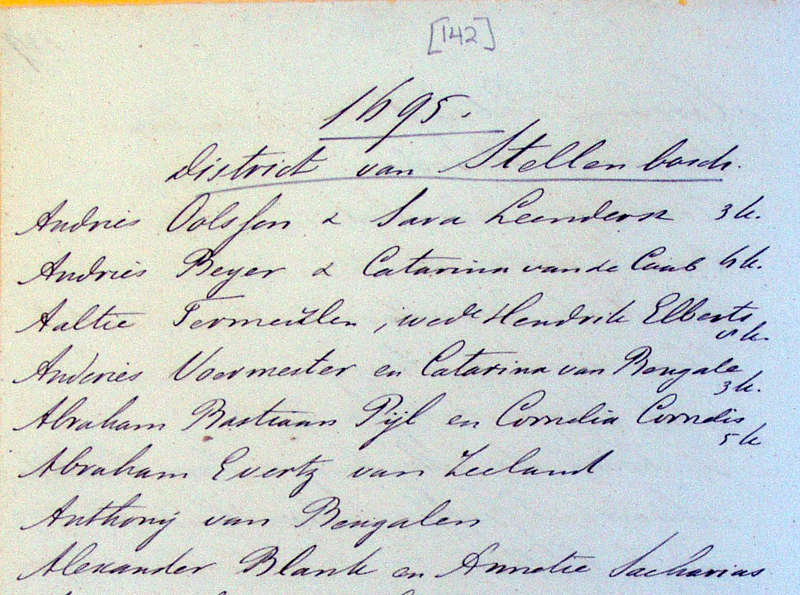 [142]
1695.
District van Stellenbosch.
Andries Oolssen & Sara Leendersz 3 k.
Andries Beyer & Catarina van de Caab 4 k.
Aaltie Termeulen, wede Hendrik Elberts
k.
Anderies Voormester en Catarina van Bengale
3 k.
Abraham Bastiaan Pijl en Cornelia Cornelis
5 k
Abraham Evertz van Zeeland
Anthonij van Bengalen
Alexander Blank en Annetie Sacharias